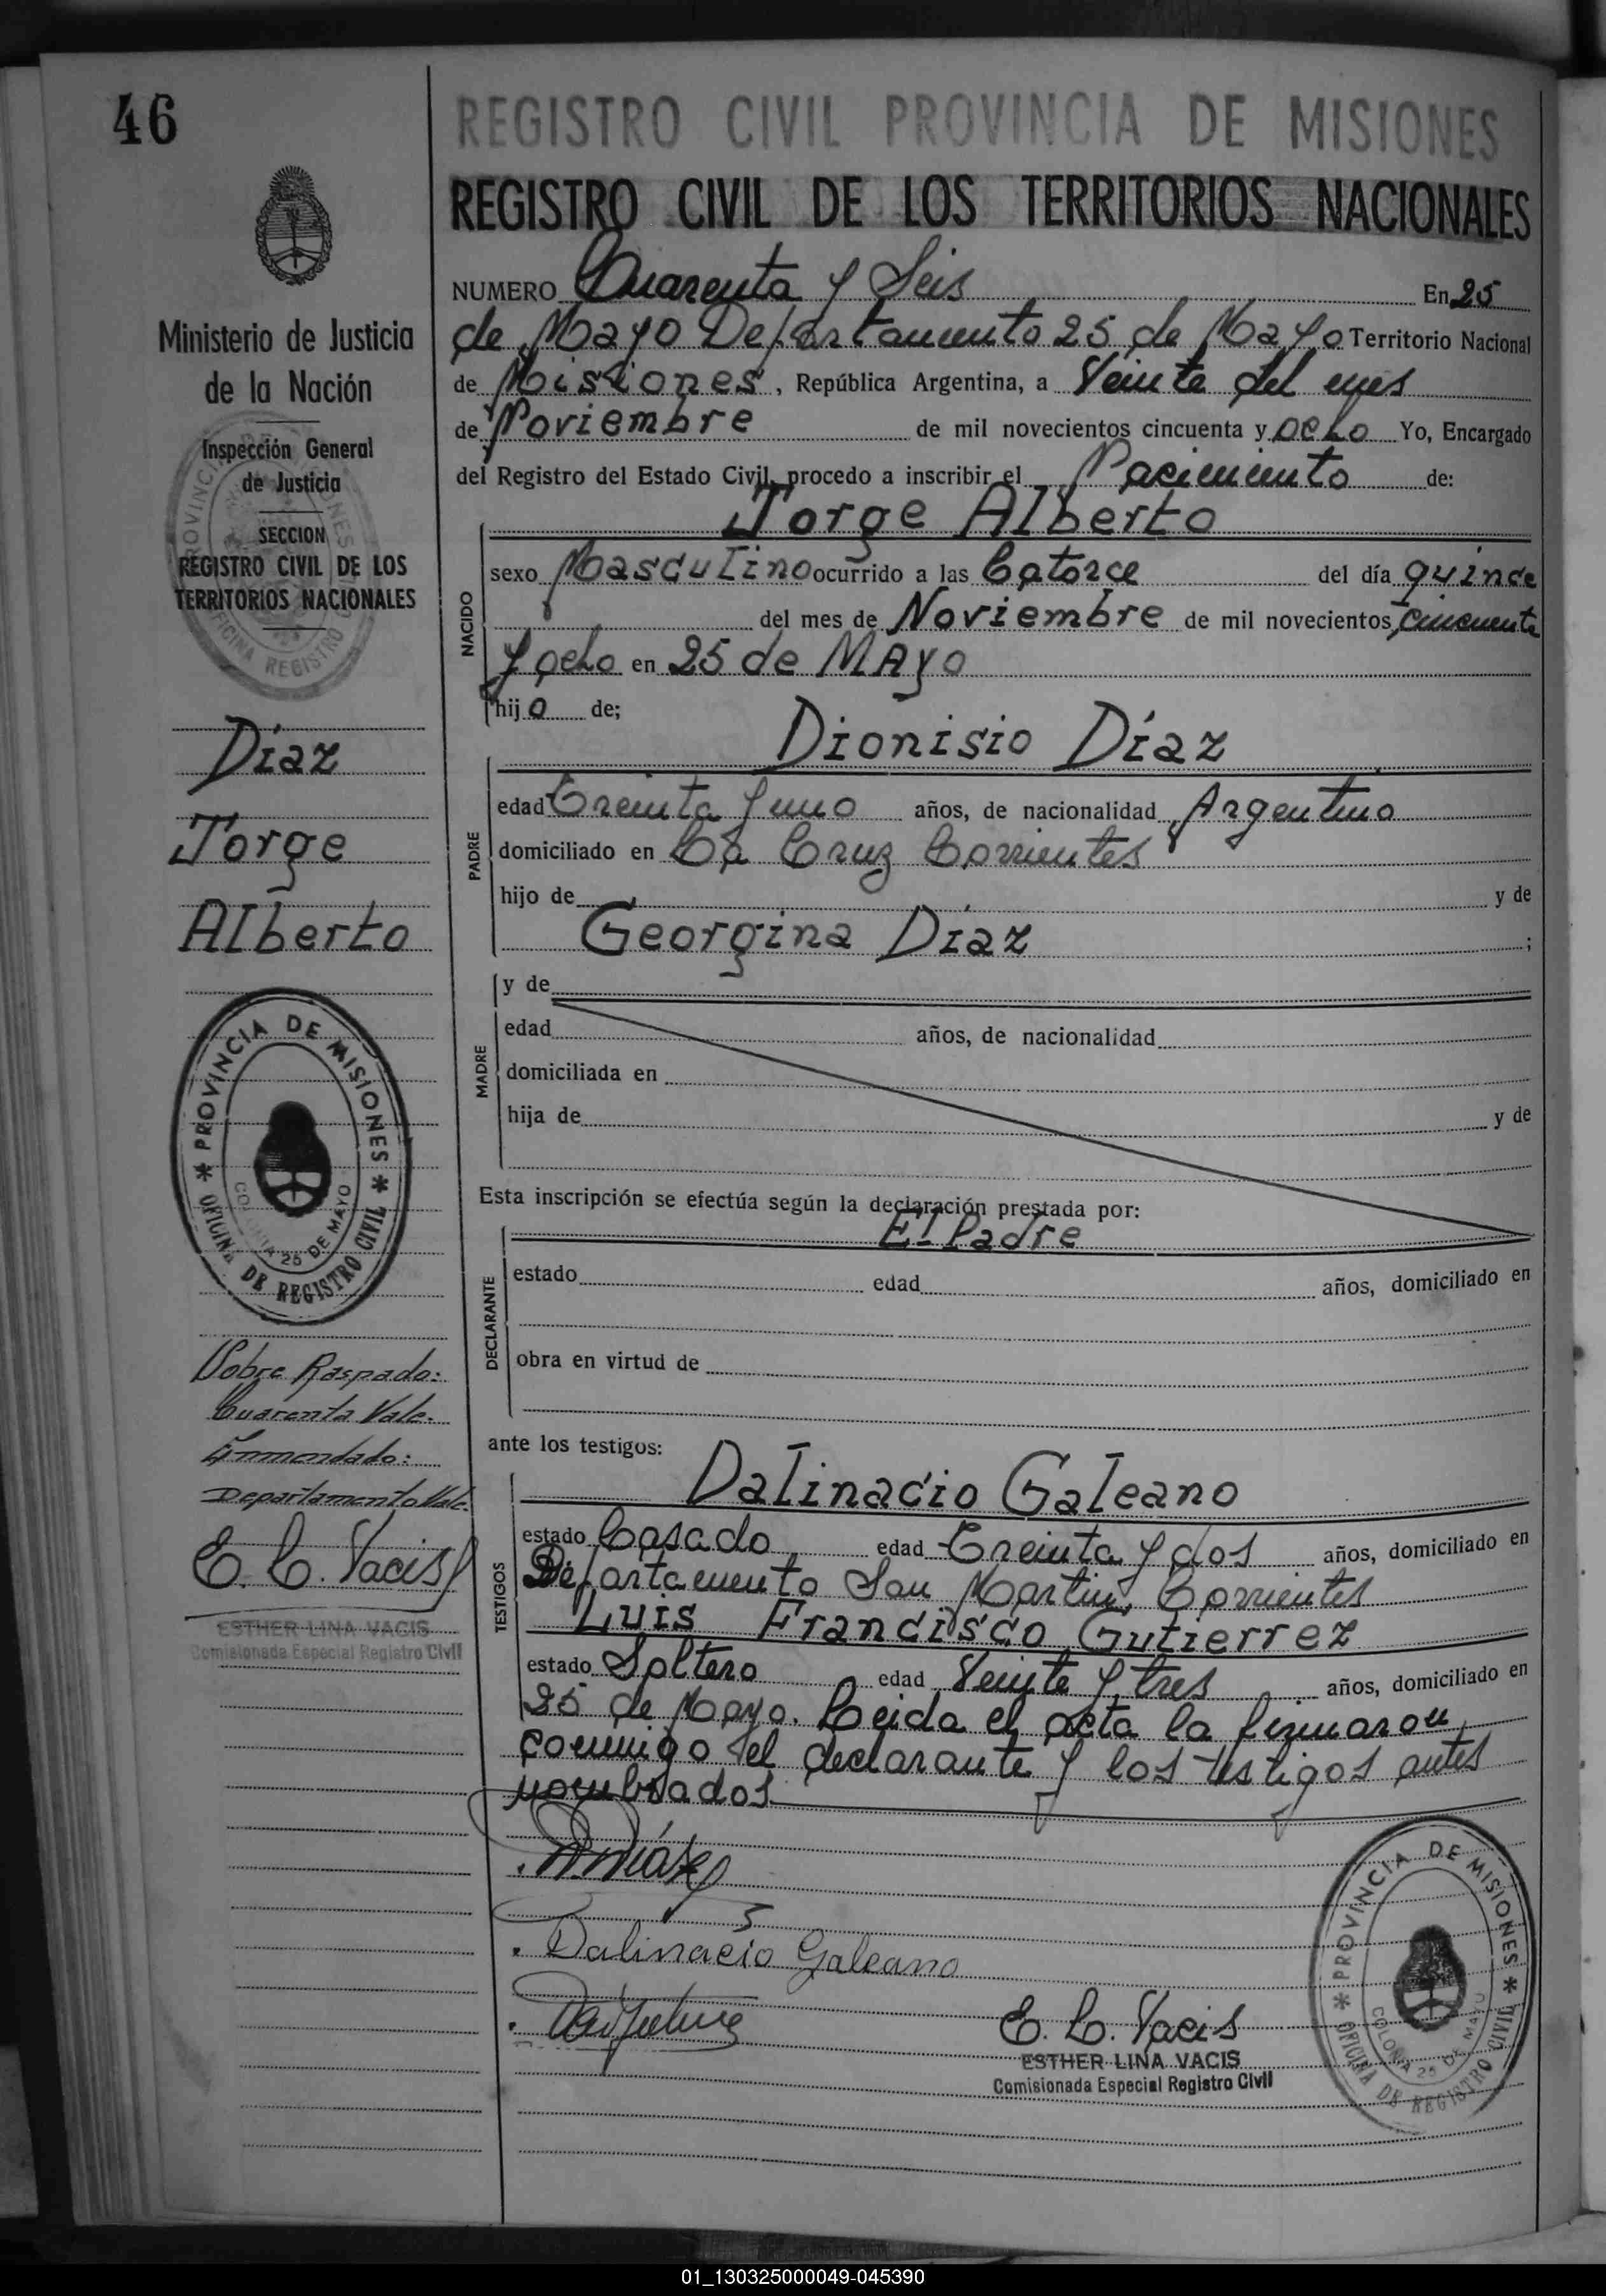 46
REGISTRO CIVIL PROVINCIA DE MISIONES
REGISTRO CIVIL DE LOS TERRITORIOS NACIONALES
Ministerio de Justicia
de la Nación
Inspección General
de Justicia
SECCION
REGISTRO CIVIL DE LOS
TERRITORIOS NACIONALES
OFICINA REGISTRO
Díaz
Jorge
Alberto
PROVINCIA DE MISIONES
COLONIA 25 DE MAYO
OFICINA DE REGISTRO CIVIL
Sobre Raspado:
Cuarenta Vale.
Enmendado:
Departamento Vale.
E. L. Vacis
ESTHER LINA VACIS
Comisionada Especial Registro Civil
NUMERO Cuarenta y Seis En 25
de Mayo Departamento 25 de Mayo Territorio Nacional
de Misiones, República Argentina, a Veinte del mes
de Noviembre de mil novecientos cincuenta y ocho Yo, Encargado
del Registro del Estado Civil, procedo a inscribir el Nacimiento de:
Jorge Alberto
NACIDO
sexo Masculino ocurrido a las Catorce del día quince
del mes de Noviembre de mil novecientos cincuenta
y ocho en 25 de MAyo
hijo de;
Dionisio Díaz
PADRE
edad Treinta y uno años, de nacionalidad Argentino
domiciliado en La Cruz Corrientes
hijo de y de
Georgina Díaz ;
MADRE
y de
edad años, de nacionalidad
domiciliada en
hija de y de
Esta inscripción se efectúa según la declaración prestada por:
El Padre
DECLARANTE
estado edad años, domiciliado en
obra en virtud de
ante los testigos:
Dalinacio Galeano
TESTIGOS
estado Casado edad Treinta y dos años, domiciliado en
Departamento San Martin, Corrientes
Luis Francisco Gutierrez
estado Soltero edad Veinte y tres años, domiciliado en
25 de Mayo. Leida el acta la firmaron
conmigo el declarante y los testigos antes
nombrados.
Díaz
Dalinacio Galeano
E. L. Vacis
ESTHER LINA VACIS
Comisionada Especial Registro Civil
PROVINCIA DE MISIONES
COLONIA 25 DE MAYO
OFICINA DE REGISTRO CIVIL
01_130325000049-045390